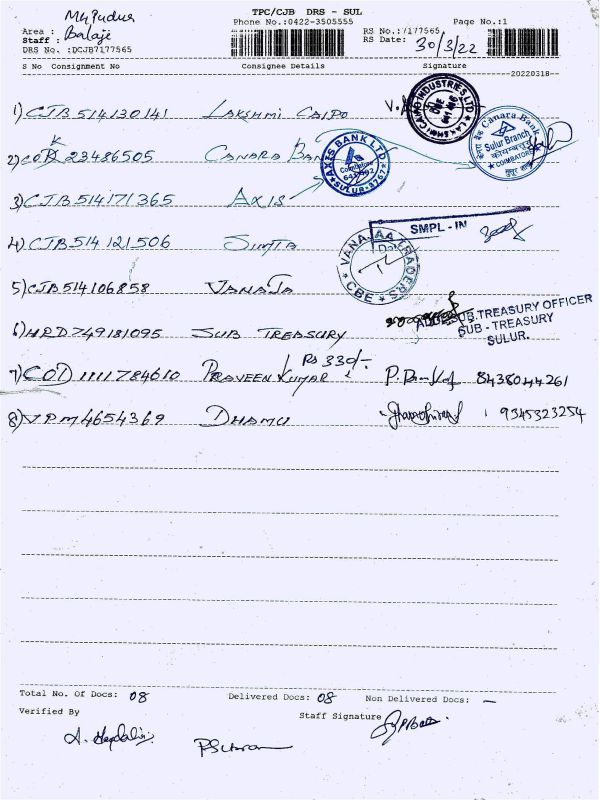 TPC/CJB DRS - SUL
Phone No.:0422-3505555
Page No.:1
Area : Mg Pudur
Staff : Balaje
DRS No. :DCJB7177565
RS No.:7177565
RS Date: 30/3/22
S No Consignment No Consignee Details Signature
20220318
1) CJB 514130141 Lakshmi Caipo
LAKSHMI CAIPO INDUSTRIES LTD
CBE
2) 23486505 Canara Bank
Canara Bank
Sulur Branch
COIMBATORE
AXIS BANK LTD
Coimbatore
SULUR-3767
3) CJB 514171365 Axis
4) CJB 514121506 Simta
SMPL - IN
5) CJB 514106858 Vanaja
VANAJAA TRADERS
CBE
6) HRD749181095 Sub Treasury
SUB.TREASURY OFFICER
SUB - TREASURY
SULUR.
7) COD 1111784610 Praveen Kumar Rs 330/- 8438044261
8) VPM4654369 Dhamu 9345323254
Total No. Of Docs: 08 Delivered Docs: 08 Non Delivered Docs: —
Verified By
Staff Signature